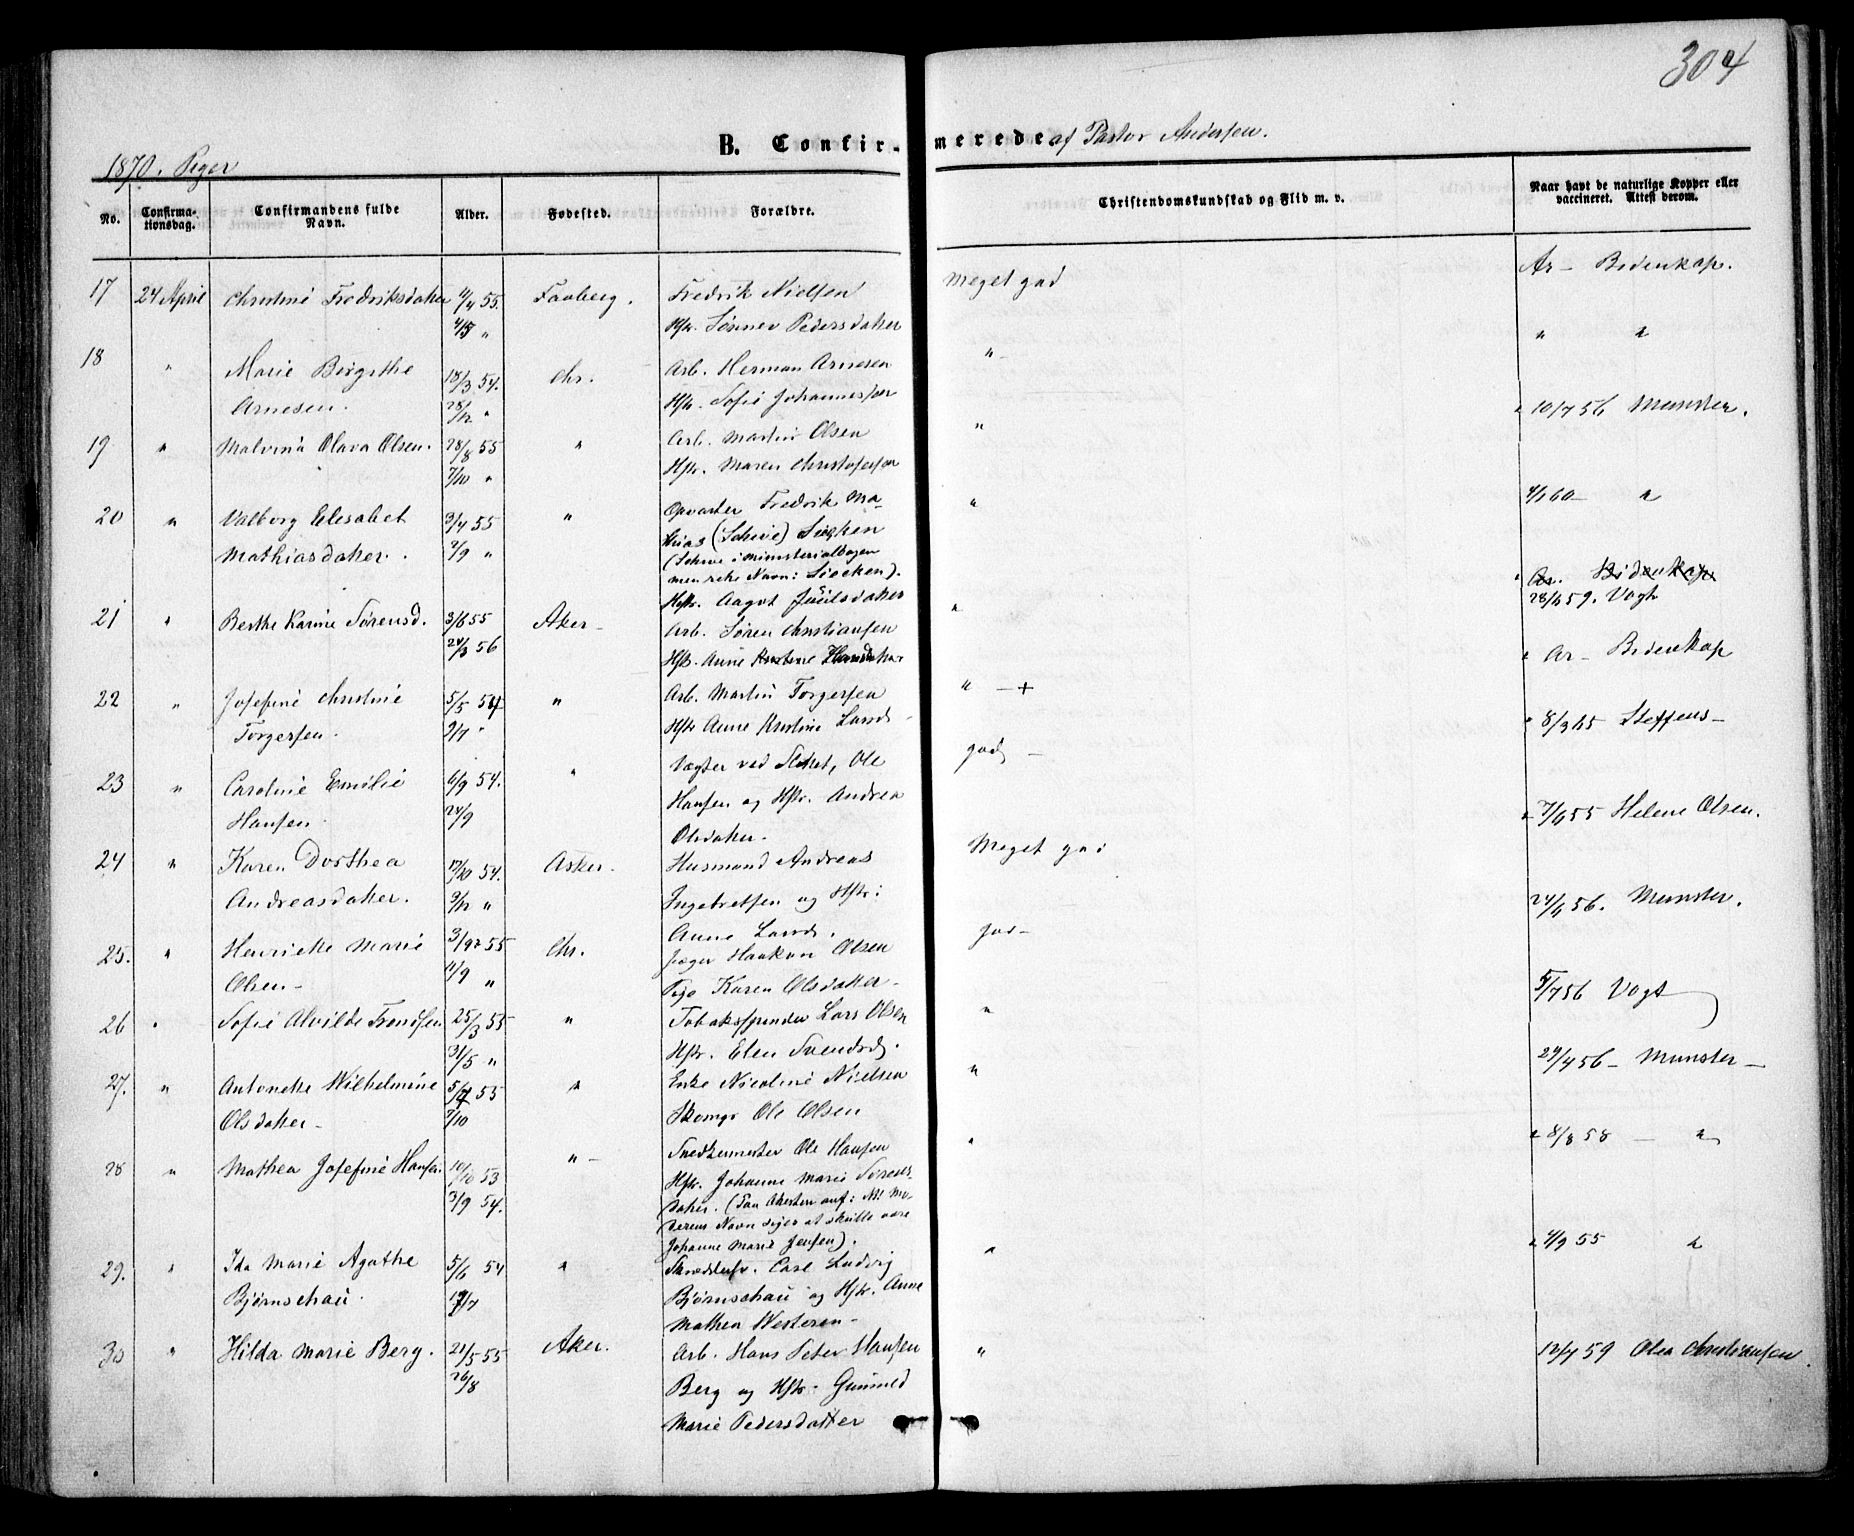 304
B. Confir- merede af Pastor Andersen.
1870. Piger
No. Confirma- Confirmandens fulde Alder. Fødested. Forældre. Christendomskundskab og Flid m. v. Naar havt de naturlige Kopper eller
tionsdag. Navn. vaccineret. Attest derom.
17 24 April Christine Fredriksdatter 4/4 55. Faaberg. Fredrik Nielsen Meget god Ar- Bidenkap.
" Hstr. Pedersdatter
18 " Marie Birgithe 18/3 54. Chr. Arb. Herman Arnesen " " "
Arnesen. 28/12 " Hstr. Sofie Johannesdr
19 " Malvina Olava Olsen. 28/8 55 " Arb. Martin Olsen " " 10/7 56 Munster.
7/10 " Hstr. Maren Christofersdr
20 " Valborg Elisabet 3/4 55 " Opvarter Fredrik Ma- " 4/1 60 - "
Mathiasdatter. 2/9 " thias (Schive) Siecken
(Schive i ministerialbogen
men rette Navn: Siecken).
Hstr. Aagot
21 " Berthe Karine Sørensd. 3/6 55 Aker - Arb. Søren Christiansen " Ar. Bidenkap
28/6 59. Vogt
24/3 56 Hstr. Anne Kristine
22 " Josefine Christine 5/5 54 " Arb. Martin Torgersen " - + " Ar - Bidenkap
Torgersen. 9/7 " Hstr Anne Kristine Larsd
23 " Caroline Emilie 6/9 54. " Vægter ved Slottet, Ole god - " 8/3 65 Steffens -
Hansen. 24/9 Hansen og Hstr. Andrea
Olsdatter.
24 " Karen Dorthea 17/10 54. Asker. Husmand Andreas Meget god " 7/6 55 Helene Olsen.
Andreasdatter. 9/12 " Ingebretsen og Hstr:
Anne Larsd.
25. " Henriette Marie 55 Chr. Jæger Haakon Olsen god - 24/6 56. Munster.
Olsen - 11/9 " Pige Karen Olsdatter -
26 " Sofie Alvilde Trondsen 25/3 55 " Tobaksspinder Lars Olsen " 5/7 56 Vogt
31/5 " Hstr. Elen Svendsd.
27. " Antonette Wilhelmine 5/7 55 " Enke Nicoline Nielsen " 29/4 56 - Munster -
Olsdatter - 7/10 Skomgr Ole Olsen
28 " Mathea Josefine Hansen 10/10 53 " - Snedkermester Ole Hansen " " 8/8 58 - "
3/9 54. Hstr. Johanne Marie Sørens-
datter. (Paa Attesten anf: At Mo-
derens Navn siges at skulle være
Johanne Marie Jensen).
29. " Ida Marie Agathe 5/6 54 " Skræddersv. Carl Ludvig " " 4/9 55 "
Bjørnschau. Bjørnschau og Hstr. Anne
Mathea Westeren -
30 " Hilda Marie Berg. 21/5 55 Aker. Arb. Hans Peter Hansen " 12/7 59 Olea Christiansen.
26/8 Berg og Hstr. Gunild
Marie Pedersdatter